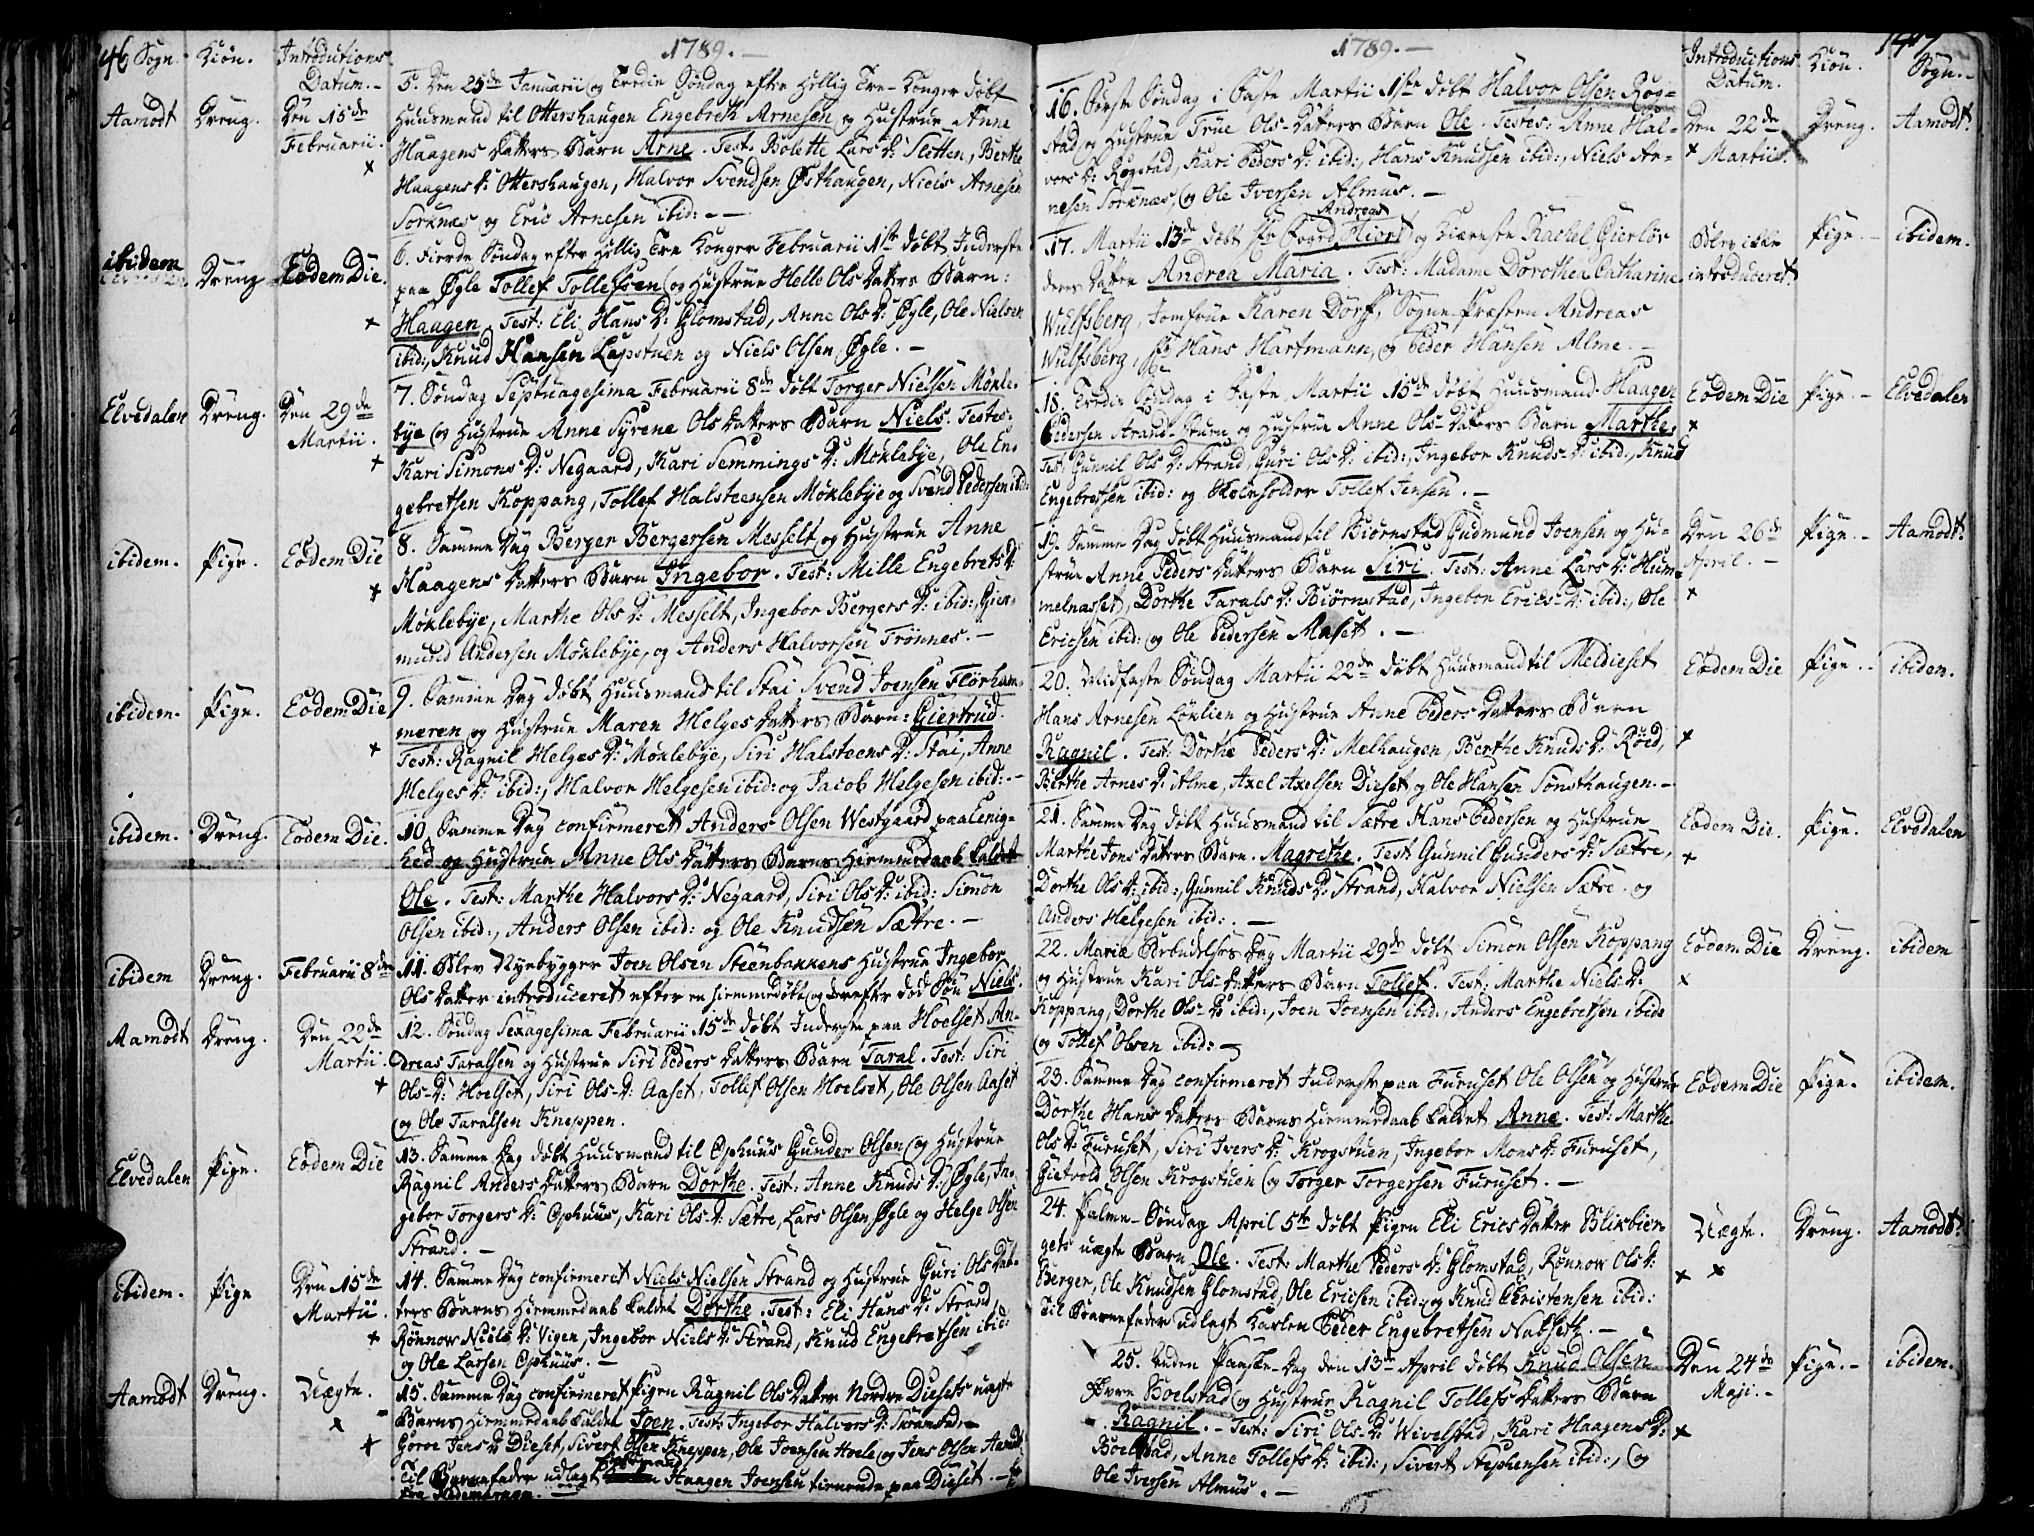 46 Sogn. Kiön. Introductions Datum. 1789.
Aamodt Dreng. Den 15de Februarii.
5. Den 25de Januarii og Tredie Söndag efter Hellig Tre-Konger döbt
Huusmand til Ottershaugen Engebreth Arnesen og Hustrue Anne
Haagens Datters Barn Arne. Test: Bolette Lars D: Sletten, Berthe
Haagens D: Ottershaugen, Halvor Svendsen Østhaugen, Niels Arnesen
Sorknæs og Eric Arnesen ibid:
ibidem Dreng Eodem Die.
6. Fierde Söndag efter Hellig Tre Konger Februarii 1ste döbt Inderste
paa Øgle Tollef Tollefsen og Hustrue Helle Ols Datters Barn:
Haagen. Test: Eli Hans D: Glomstad, Anne Ols D: Øgle, Ole Nielsen
ibid:, Knud Hansen Løpstuen og Niels Olsen Øgle.
Elvedalen Dreng. Den 29de Martii.
7. Söndag Septuagesima Februarii 8de döbt Torger Nielsen Mökle-
bye og Hustrue Anne Syrene Ols Datters Barn Niels. Testes:
Kari Simons D: Negaard, Kari Semmings D: Möklebye, Ole En-
gebretsen Koppang, Tollef Halsteensen Möklebye og Svend Pedersen ibid:
ibidem. Pige. Eodem Die
8. Samme Dag Berger Bergersen Messelt og Hustrue Anne
Haagens Datters Barn Ingebor. Test: Mille Engebrets D:
Möklebye, Marthe Ols D: Messelt, Ingebor Bergers D: ibid:,
mund Andersen Möklebye, og Anders Halvorsen Trönnes.
ibidem. Pige. Eodem Die
9. Samme Dag döbt Huusmand til Stai Svend Joensen Flörham-
meren og Hustrue Maren Helges Datters Barn: Giertrud.
Test: Ragnil Helges D: Möklebye, Siri Halsteens D: Stai, Anne
Helges D: ibid:, Halvor Helgesen ibid: og Jacob Helgesen ibid:
ibidem. Dreng. Eodem Die.
10. Samme Dag confirmeret Anders Olsen Westgaard paa Lenig-
hed og Hustrue Anne Ols Datters Barns Hiemmedaab kaldet
Ole. Test: Marthe Halvors D: Negaard, Siri Ols D: ibid: Simon
Olsen ibid:, Anders Olsen ibid: og Ole Knudsen Sætre.
ibidem Dreng. Februarii 8de
11. Blev Nyebygger Joen Olsen Steenbakkens Hustrue Ingebor
Ols Datter introduceret efter en hiemmedöbt og derefter död Sön Niels.
Aamodt Dreng. Den 22de Martii.
12. Söndag Sexagesima Februarii 15de döbt Inderste paa Hoelset An-
dreas Taralsen og Hustrue Siri Peders Datters Barn Taral. Test: Siri
Ols-D: Hoelset, Siri Ols-D: Aaset, Tollef Olsen Hoelset, Ole Olsen Aaset
og Ole Taralsen Kneppen.
Elvedalen Pige. Eodem Die
13. Samme Dag döbt Huusmand til Ophuus Gunder Olsen og Hustrue
Ragnil Anders Datters Barn Dorthe. Test: Anne Knuds D: Øgle, In-
gebor Torgers D: Ophuus, Kari Ols-D: Sætre, Lars Olsen Øgle og Helge Olsen
Strand.
ibidem. Pige Den 15de Martii.
14. Samme Dag confirmeret Niels Nielsen Strand og Hustrue Guri Ols Dat-
ters Barns Hiemmedaab kaldet Dorthe. Test: Eli Hans D: Strand,
Rönnow Niels D: Vigen, Ingebor Niels D: Strand, Knud Engebretsen ibid:
og Ole Larsen Ophuus.
Aamodt Dreng. Uægte.
15. Samme Dag confirmeret Pigen Ragnil Ols Datter Nordre Diesets uægte
Barns Hiemmedaab kaldet Joen. Test: Ingebor Halvors D:
Goroe Jens D: Dieset, Sivert Olsen Kneppen, Ole Joensen Hoele og Jens Olsen
Til Barnefader udlagt Haagen Joensen tienende paa Dieset.
1789. Introductions Datum. Kiön. 147 Sogn.
16. Förste Söndag i Faste Martii 1ste döbt Halvor Olsen Rog-
stad og Hustrue True Ols-Datters Barn Ole. Testes: Anne Hal-
vors D: Rogstad, Kari Peders D: ibid:, Hans Knudsen ibid:, Niels Ar-
nesen Sorknæs, og Ole Iversen Almus.
Den 22de Martii. Dreng. Aamodt.
17. Martii 13de döbt Hr Foged Andreas Hiort og Kiæreste Rachel Gierlöv
deres Datter Andrea Maria. Test: Madame Dorothea Catharine
Wulfsberg, Jomfrue Karen Dorf, Sogne-Præsten Andreas
Wulfsberg, Hr Hans Hartmann, og Peder Hansen Alme.
Blev ikke introduceret. Pige. ibidem.
18. Tredie Söndag i Faste Martii 15de döbt Huusmand Haagen
Pedersen Strand-Stuen og Hustrue Anne Ols-Datters Barn Marthe.
Test: Gunnil Ols D: Strand, Guri Ols D: ibid:, Ingebor Knuds D: ibid:, Knud
Engebretsen ibid: og Skoleholder Tollef Jensen.
Eodem Die Pige. Elvedalen
19. Samme Dag döbt Huusmand til Biörnstad Gudmund Joensen og Hu-
strue Anne Peders Datters Barn Siri. Test: Anne Lars D: Hum-
melnasset, Dorthe Tarals D: Biörnstad, Ingebor Erics-D: ibid:, Ole
Ericsen ibid: og Ole Pedersen Maset.
Den 26de April. Pige. Aamodt.
20. Midfaste Söndag Martii 22de döbt Huusmand til Meldieset
Hans Arnesen Löklien og Hustrue Anne Peders Datters Barn
Ragnil. Test: Dorthe Peders D: Melhaugen, Berthe Knuds D: Röed,
Berthe Arnes D: Alme, Axel Axelsen Dieset og Ole Hansen Sönsthaugen.
Eodem Die Pige. ibidem.
21. Samme Dag döbt Huusmand til Sætre Hans Pedersen og Hustrue
Marthe Jons Datters Barn. Magrethe. Test: Gunnil Gunders D: Sætre,
Dorthe Ols D: ibid:, Gunnil Knuds D: Strand, Halvor Nielsen Sætre. og
Anders Helgesen ibid:.
Eodem Die. Pige. Elvedalen
22. Mariæ Bebudelses Dag Martii 29de döbt Simon Olsen Koppang
og Hustrue Kari Ols-Datters Barn Tollef. Test: Marthe Niels D:
Koppang, Dorthe Ols-D: ibid:, Joen Joensen ibid:, Anders Engebretsen ibid:
og Tollef Olsen ibid:
Eodem Die Dreng. ibidem
23. Samme Dag confirmeret Inderste paa Furuset Ole Olsen og Hustrue
Dorthe Hans Datters Barns Hiemmedaab kaldet Anne. Test: Marthe
Ols D: Furuset, Siri Ivers D: Krogstuen, Ingebor Mons D: Furuset,
Gietvold Olsen Krogstuen og Torger Torgersen Furuset.
Eodem Die Pige. ibidem.
24. Palme-Söndag April 5te döbt Pigen Eli Erics Datter Blikbier-
gets uægte Barn Ole. Test: Marthe Peders D: Glomstad, Rönnow Ols D:
Berger, Ole Knudsen Glomstad, Ole Ericsen ibid: og Knud Christensen ibid:
Til Barnefader udlagt Karlen Peder Engebretsen Nabseth.
Uægte. Dreng. Aamodt:
25. Anden Paaske-Dag den 13de April döbt Knud Olsen
Övre Boelstad og Hustrue Ragnil Tollefs Datters Barn
Ragnil. Test: Siri Ols-D: Wivelstad, Kari Haagens D:
Boelstad, Anne Tollefs D: ibid:, Sivert Stephensen ibid:, og
Ole Iversen Almus.
Den 24de Maji. Pige. ibidem.